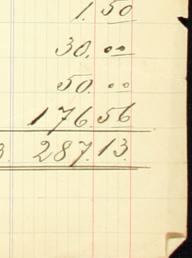 1.50
30.00
50.00
176 56
3 287.13.